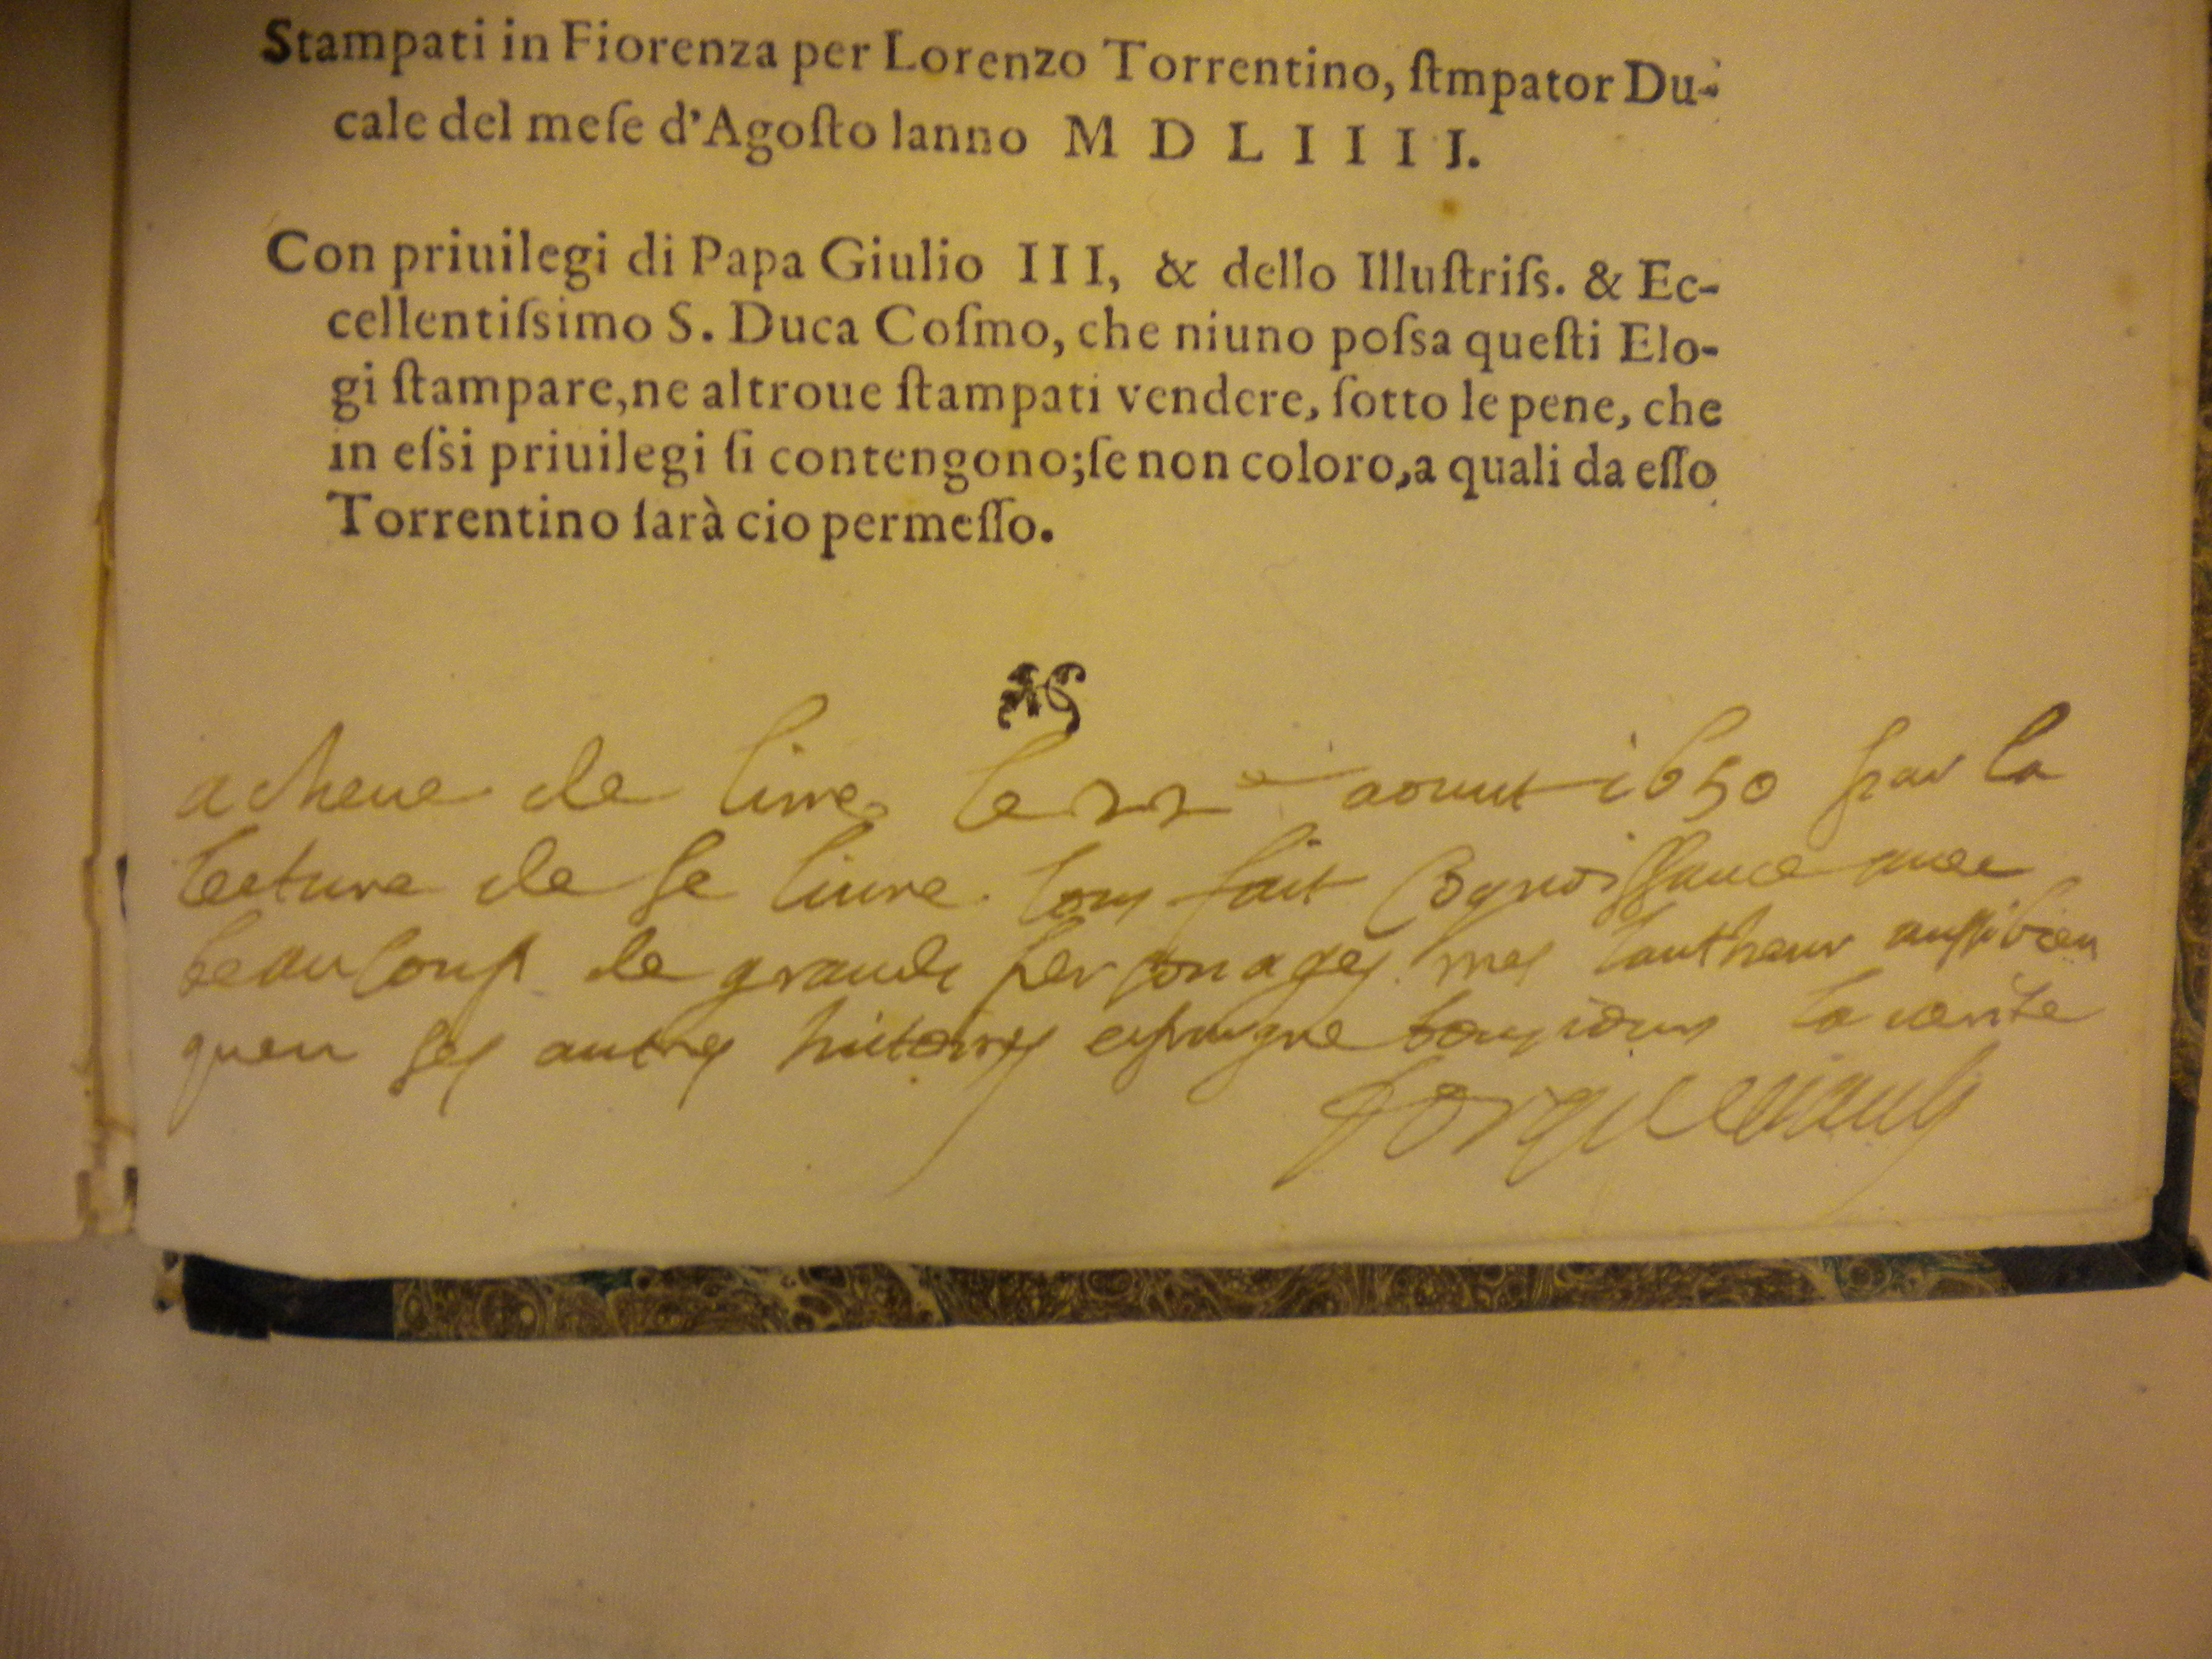 Stampati in Fiorenza per Lorenzo Torrentino, ſtmpator Du-
cale del meſe d'Agoſto lanno M D L I I I I.
Con priuilegi di Papa Giulio III, & dello Illuſtriſs. & Ec-
cellentiſsimo S. Duca Coſmo, che niuno poſsa queſti Elo-
gi ſtampare, ne altroue ſtampati vendere, ſotto le pene, che
in eſsi priuilegi ſi contengono; ſe non coloro, a quali da eſſo
Torrentino ſarà cio permeſſo.
acheue de lirre le 22e aoust 1650 par la
lecture de se liure lon fait cognoissance auec
beaucoup de grands personages mes lautheur aussi bien
quen ses autres histoires espargne tousiours la verite